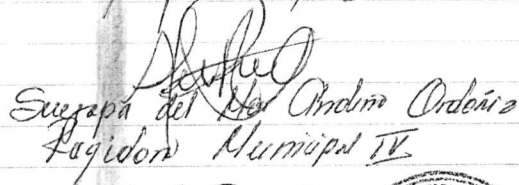 Suyapa del Mar Andino Ordóñez
Regidora Municipal IV